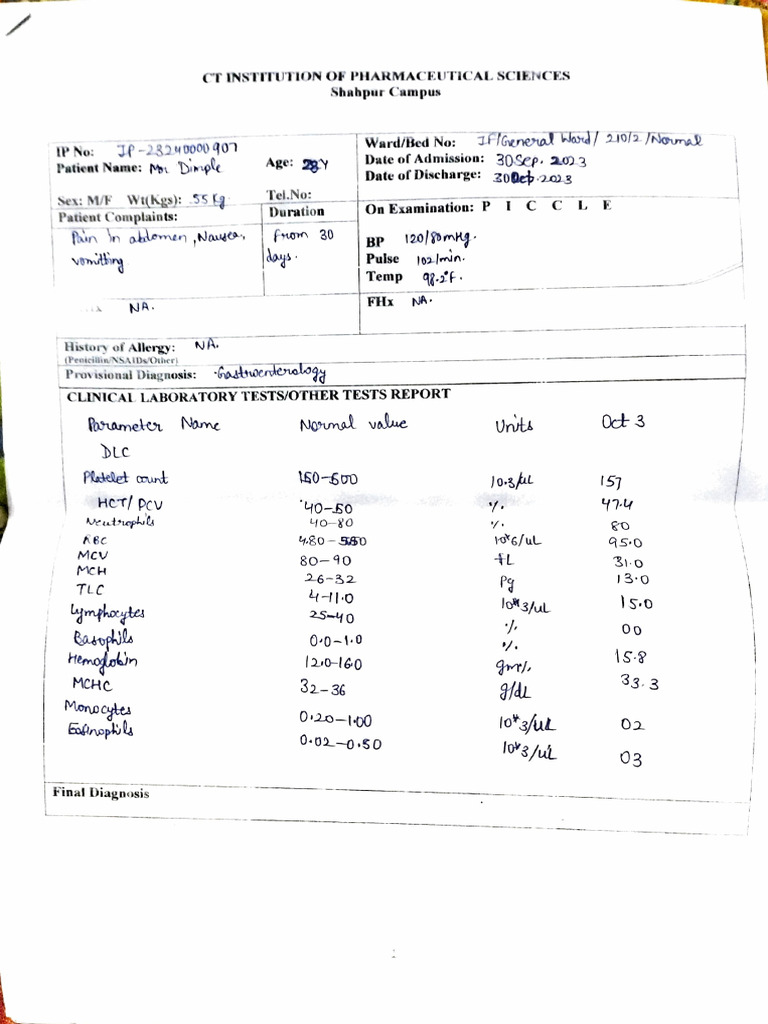 CT INSTITUTION OF PHARMACEUTICAL SCIENCES
Shahpur Campus
IP No: IP-23240000907
Patient Name: Mr Dimple Age: 28Y
Sex: M/F Wt(Kgs): 55 Kg Tel.No:
Ward/Bed No: IF/General Ward/ 210/2/Normal
Date of Admission: 30 Sep. 2023
Date of Discharge: 30 2023
Patient Complaints: Duration
Pain in abdomen, Nausea, From 30
vomitting days.
On Examination: P I C C L E
BP 120/80mHg.
Pulse 102/min.
Temp 98.2°F.
NA.
FHx NA.
History of Allergy: NA.
(Penicillin/NSAIDs/Other)
Provisional Diagnosis: Gastroenterology
CLINICAL LABORATORY TESTS/OTHER TESTS REPORT
Parameter Name Normal value Units Oct 3
DLC
Platelet count 150-500 10.3/uL 157
HCT/PCV 40-50 % 47.4
Neutrophils 40-80 % 80
RBC 4.80- 10*6/uL 95.0
MCV 80-90 fL 31.0
MCH 26-32 Pg 13.0
TLC 4-11.0 10*3/uL 15.0
Lymphocytes 25-40 % 00
Basophils 0.0-1.0 %
Hemoglobin 12.0-16.0 gm% 15.8
MCHC 32-36 g/dL 33.3
Monocytes 0.20-1.00 10*3/uL 02
Eosinophils 0.02-0.50 10*3/uL 03
Final Diagnosis